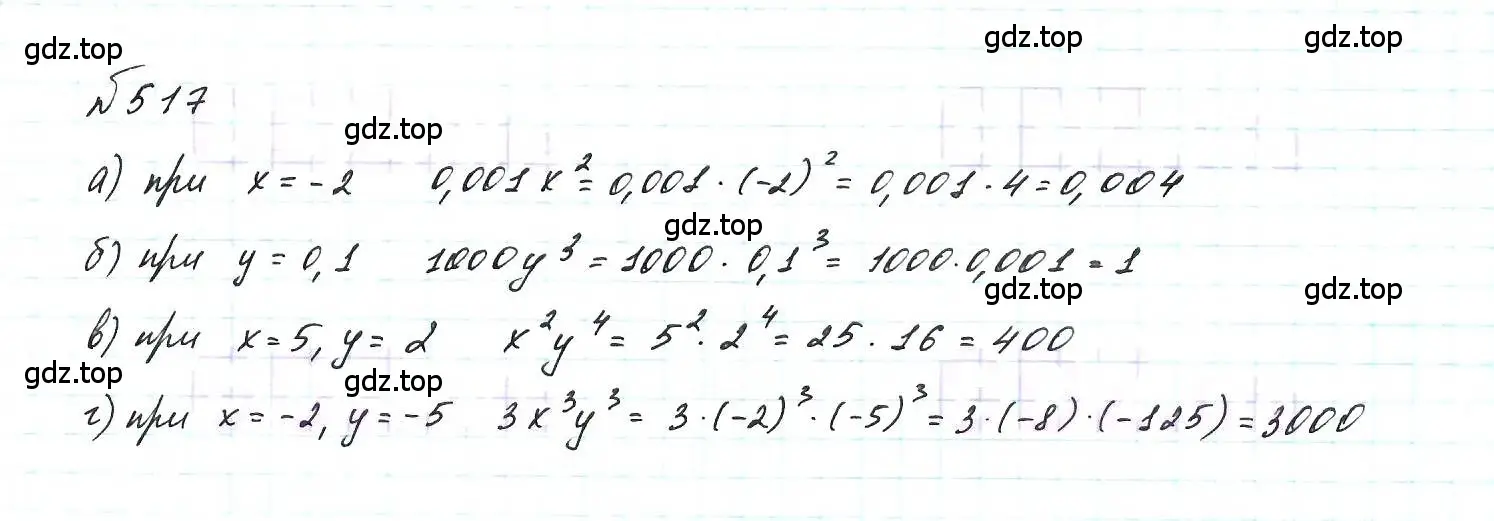 gdz.top gdz.top gdz.top
№517
gdz.top
а) при x = -2 0,001x² = 0,001 · (-2)² = 0,001 · 4 = 0,004
gdz.top
б) при y = 0,1 1000y³ = 1000 · 0,1³ = 1000 · 0,001 = 1
gdz.top gdz.top
в) при x = 5, y = 2 x²y⁴ = 5² · 2⁴ = 25 · 16 = 400
gdz.top gdz.top
г) при x = -2, y = -5 3x³y³ = 3 · (-2)³ · (-5)³ = 3 · (-8) · (-125) = 3000